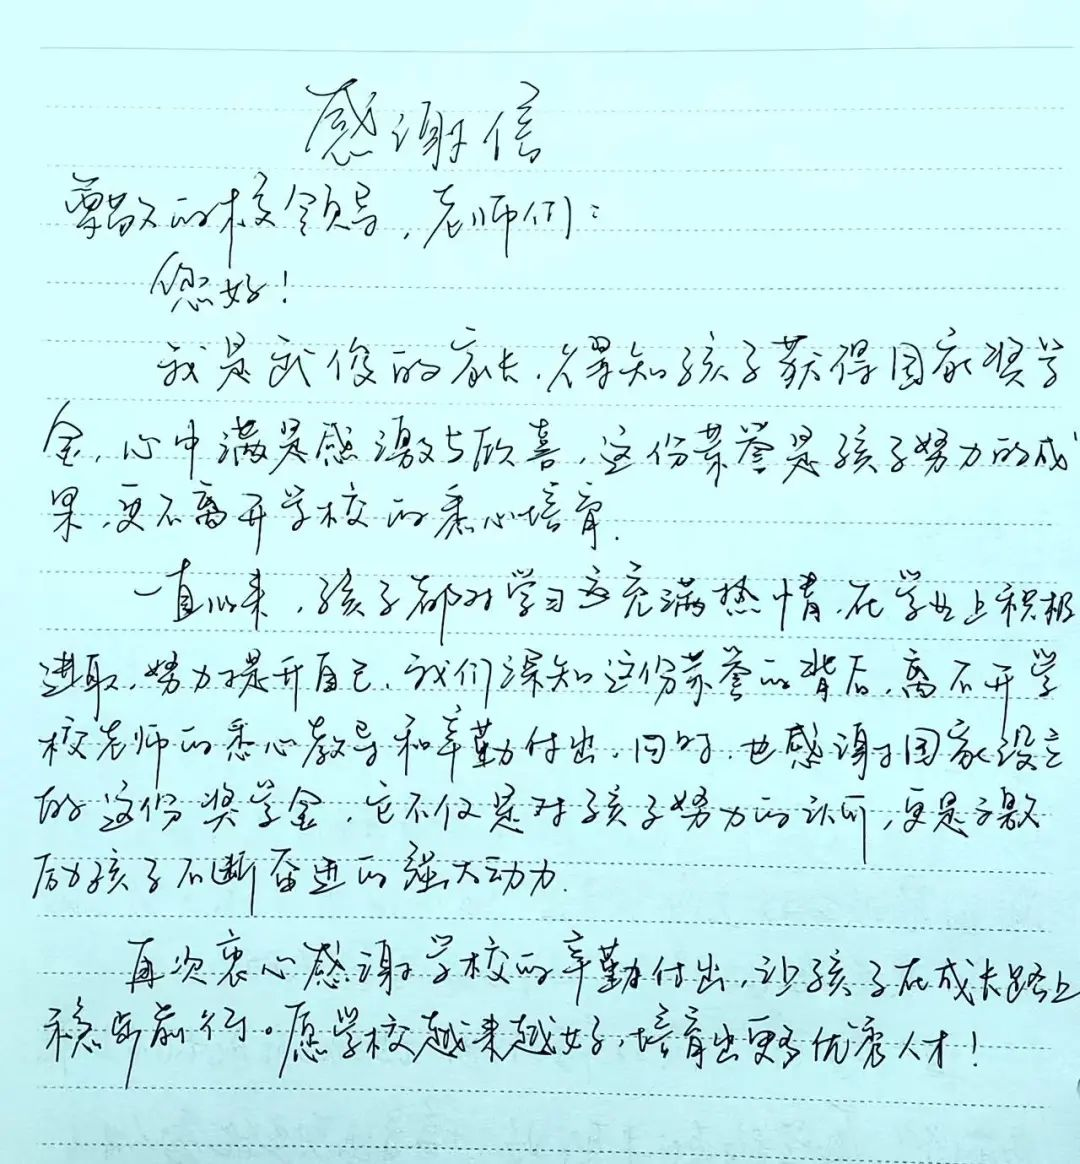 感谢信
尊敬的校领导,老师们:
您好!
我是武俊的家长,得知孩子获得国家奖学
金,心中满是感激与欣喜,这份荣誉是孩子努力的成
果,更不离开学校的悉心培育.
一直以来,孩子都对学习充满热情,在学业上积极
进取,努力提升自己,我们深知这份荣誉的背后,离不开学
校老师的悉心教导和辛勤付出,同时,也感谢国家设立
的这份奖学金,它不仅是对孩子努力的认可,更是激
励孩子不断奋进的强大动力.
再次衷心感谢学校的辛勤付出,让孩子在成长路上
稳步前行。愿学校越来越好,培育出更多优秀人才!